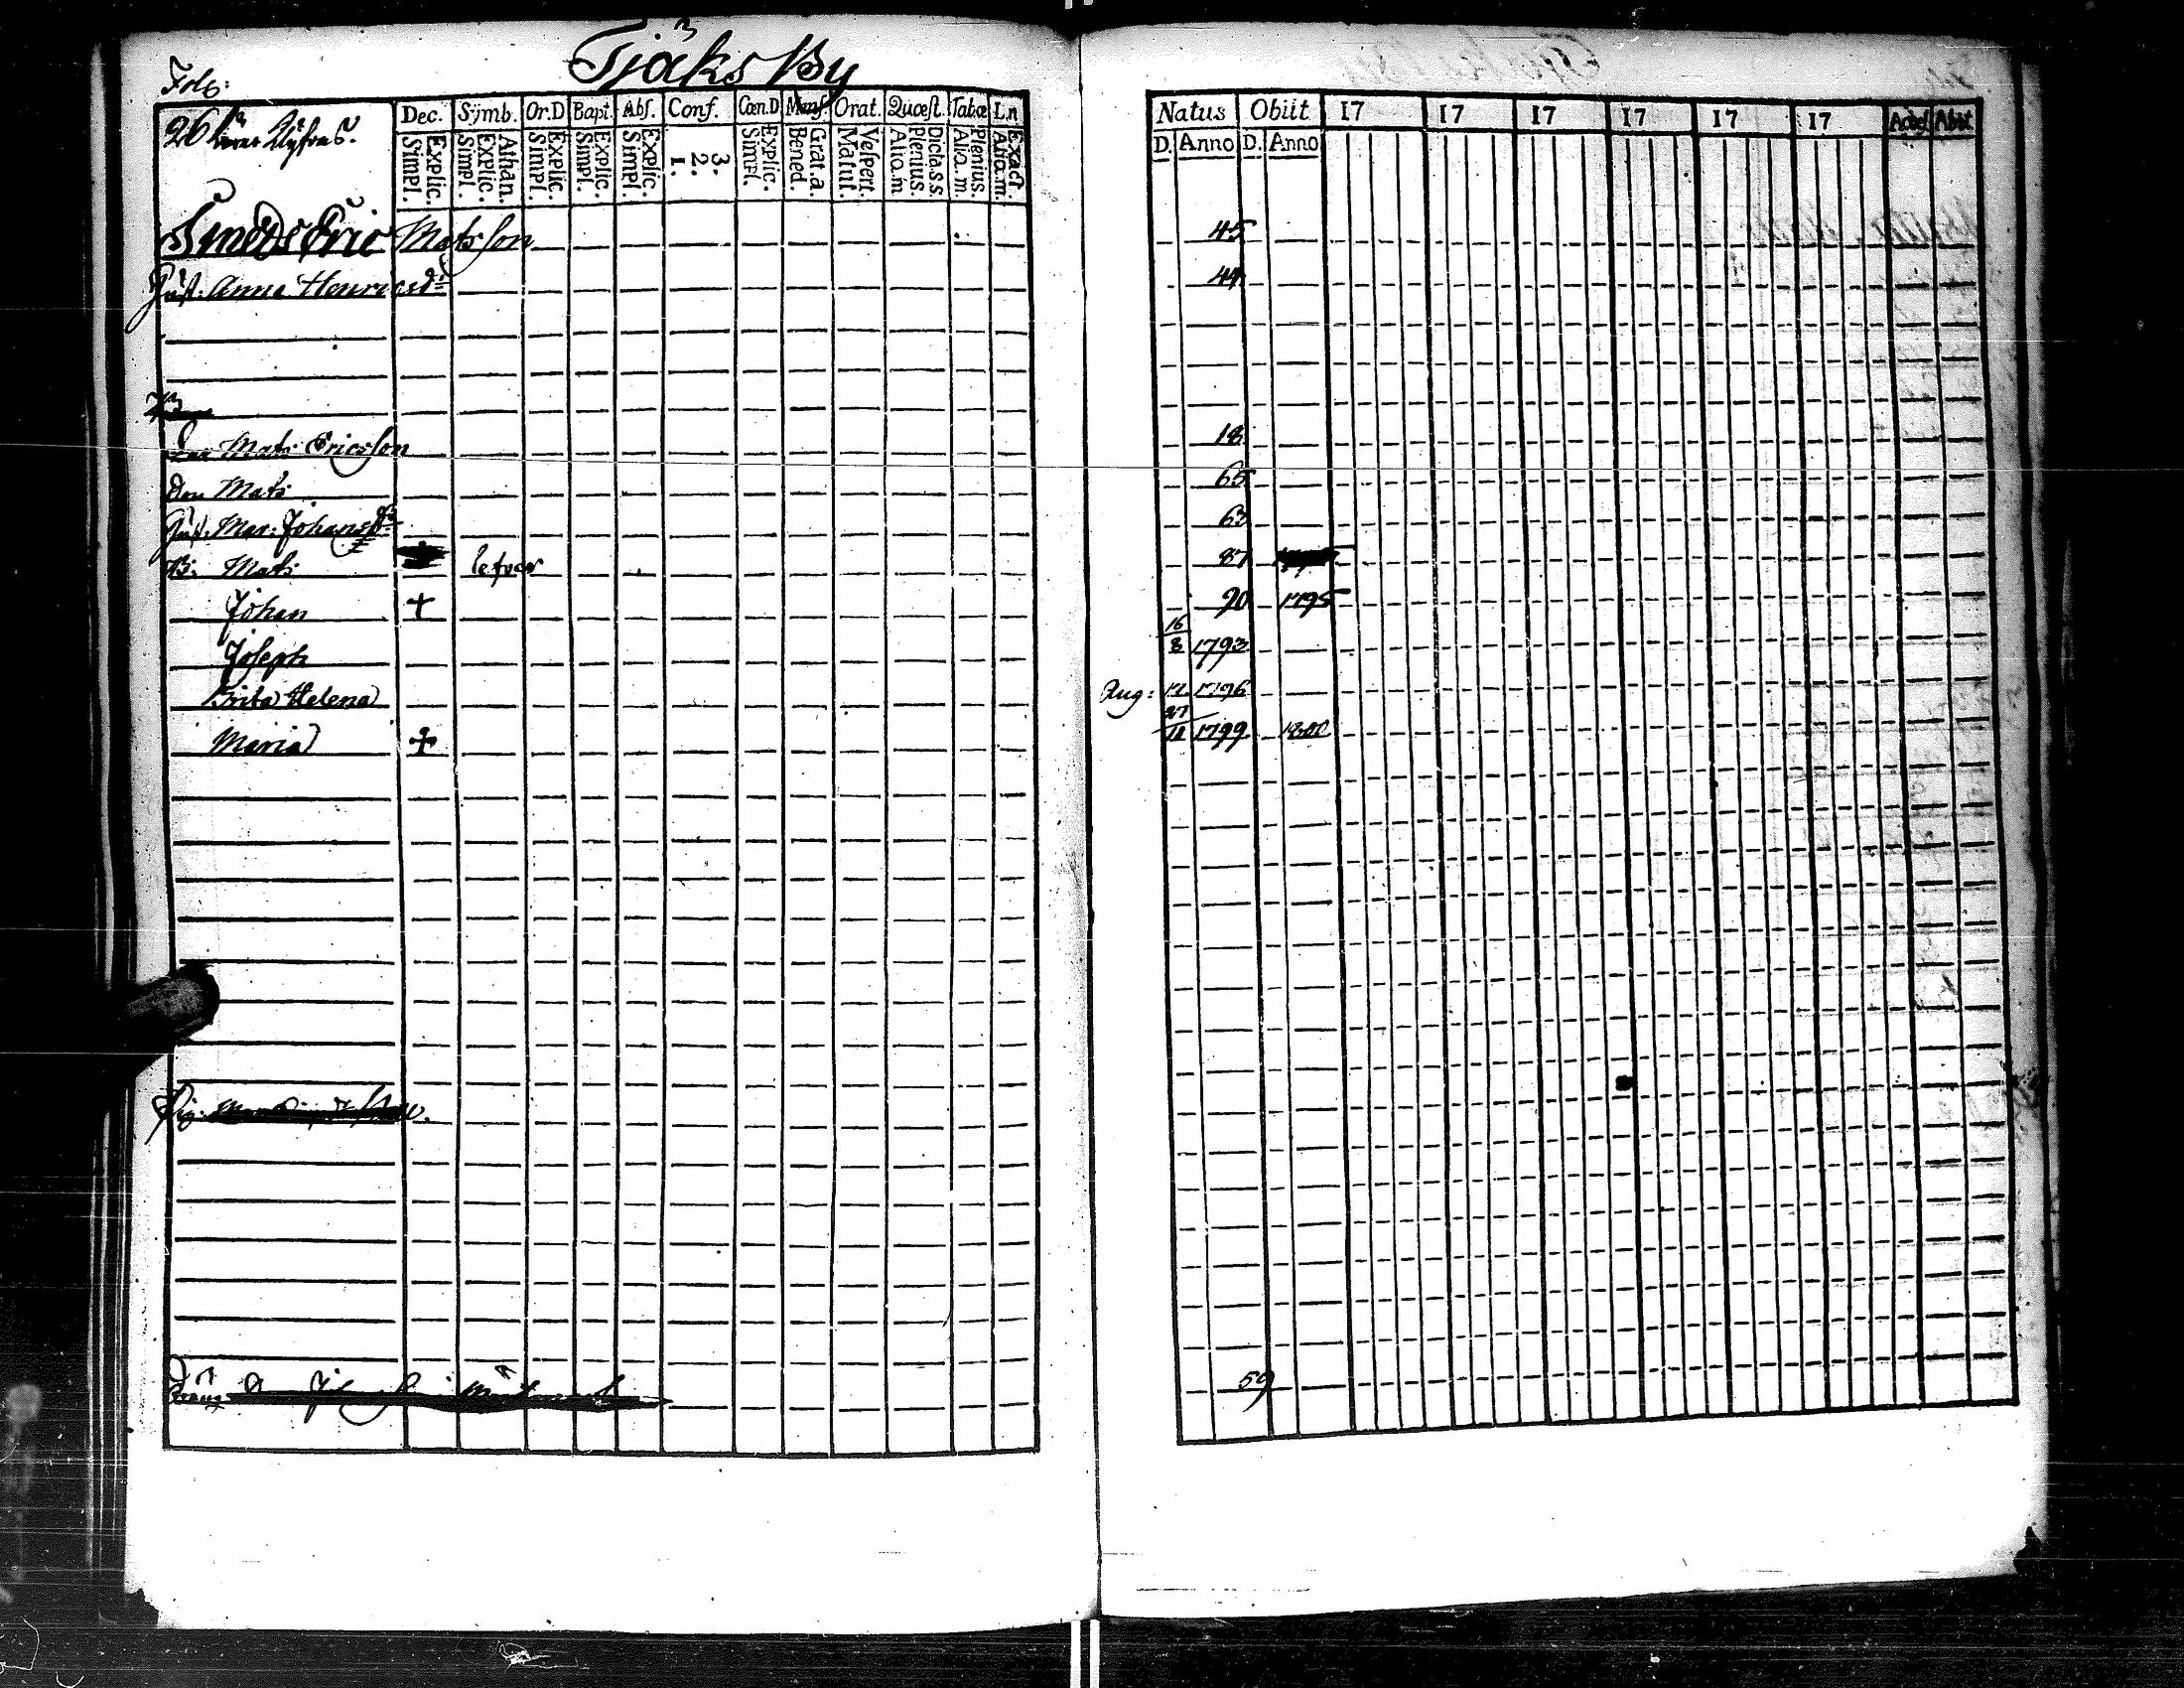 Tjäks By
Fol:
26
Dec. Symb. Or.D Bapt. Abſ. Conf. Cœn.D Menſ. Orat. Quæſt. Tabœ Ln
Explic. Simpl. Athan. Explic. Simpl. Explic. Simpl. Explic. Simpl. Explic. Simpl. 3. 2. 1. Explic. Simpl. Grat.a. Bened. Veſpert. Matut. Dicta.s.s. Plenius. Alio.m. Plenius. Alio.m. Exact. Alio.m.
Smeds Eric Matsson
Hust. Anna Henricsdr
Mats Ericsson
Son Mats
Hust. Mar: Johansdr
B: Mats lefver
Johan +
Joseph
Brita Helena
Maria +
Pig:
Natus Obiit 17 17 17 17 17 17 Acceſ Abit
D. Anno D. Anno
45
44
18
65
63
87
90 1795
16/8 1793
Aug: 1796
27 1799 1800
59